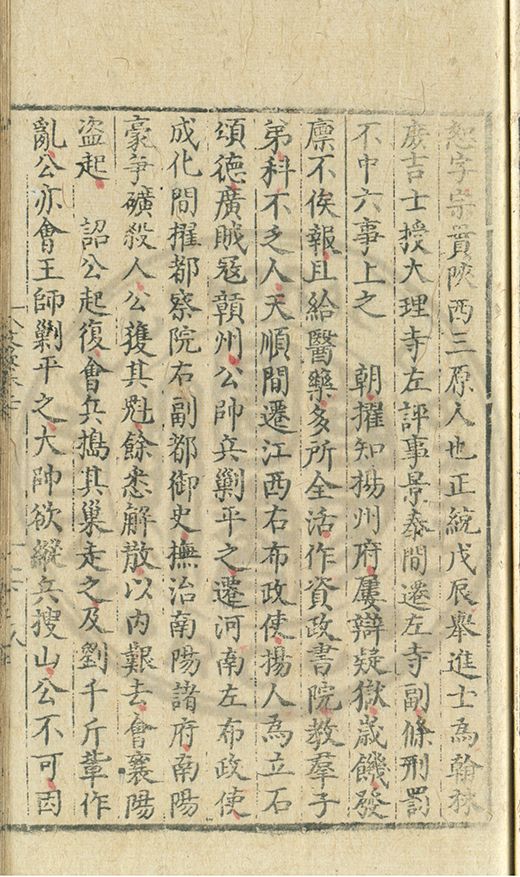 恕字宗貫陝西三原人也正統戊辰舉進士為翰林
庶吉士授大理寺左評事景泰間遷左寺副條刑罰
不中六事上之　朝擢知揚州府屢辯疑獄歲饑發
廩不俟報且給醫藥多所全活作資政書院教羣子
弟科不乏人天順間遷江西右布政使揚人為立石
頌德廣賊寇贛州公帥兵剿平之遷河南左布政使
成化間擢都察院右副都御史撫治南陽諸府南陽
豪爭礦殺人公獲其魁餘悉解散以内艱去會襄陽
盜起　詔公起復會兵搗其巢走之及劉千斤輩作
亂公亦會王師剿平之大帥欲縱兵搜山公不可因